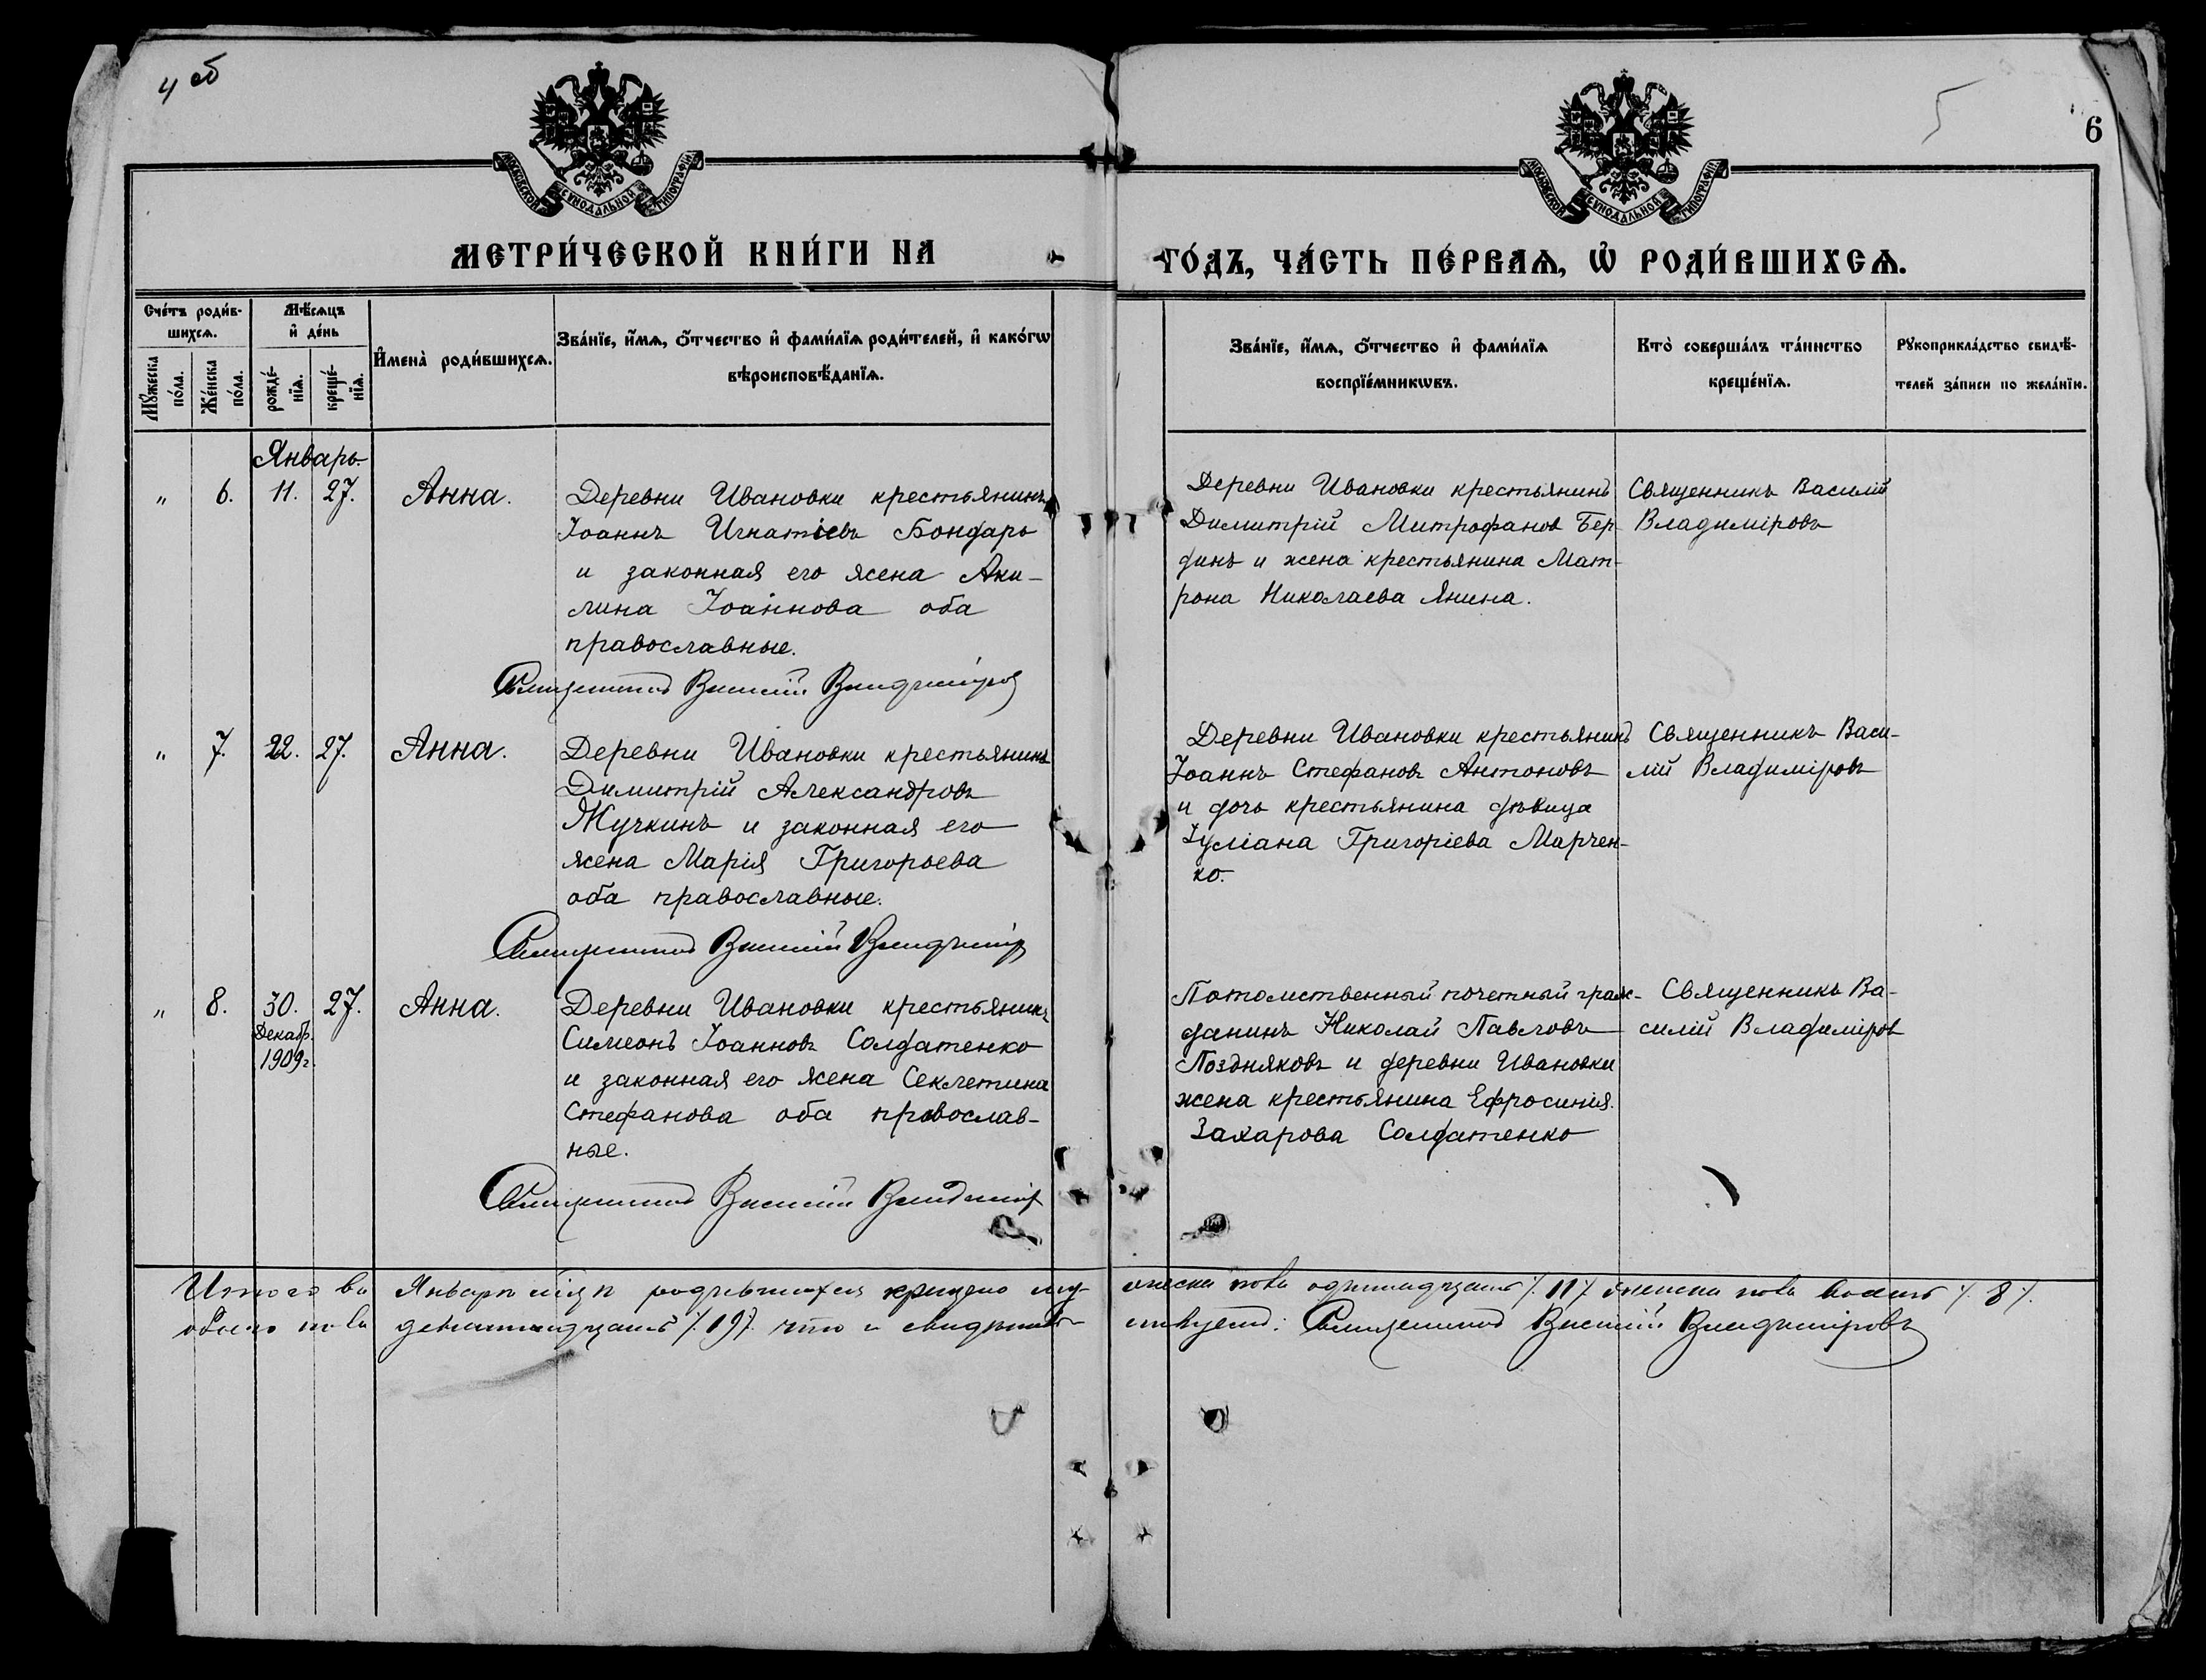 4 об
5
6
МОСКОВСКОЙ СѴНОДАЛЬНОЙ ТИПОГРАФІИ
МОСКОВСКОЙ СѴНОДАЛЬНОЙ ТИПОГРАФІИ
МЕТРИ́ЧЕСКОЙ КНИ́ГИ НА
ГО́ДЪ, ЧА́СТЬ ПЕ́РВАѦ, Ѽ РОДИ́ВШИХСѦ.
Сче́тъ роди́в-
шихсѧ.
Мꙋ́жеска
по́ла.
Же́нска
по́ла.
Мѣ́сѧцъ
и҆ де́нь
рожде́-
нїѧ.
креще́-
нїѧ.
И҆мена̀ роди́вшихсѧ.
Зва́нїе, и҆́мѧ, ѻ҆́тчество и҆ фами́лїѧ роди́телей, и҆ како́гѡ
вѣроисповѣ́данїѧ.
Зва́нїе, и҆́мѧ, ѻ҆́тчество и҆ фами́лїѧ
воспрїе́мникѡвъ.
Кто̀ соверша́лъ та́инство
креще́нїѧ.
Рꙋкоприкла́дство свидѣ́-
телей за́писи по жела́нїю.
Январь
" 6. 11. 27. Анна.
Деревни Ивановки крестьянинъ
Іоаннъ Игнатіевъ Бондарь
и законная его жена Аки-
лина Іоаннова оба
православные.
Священникъ Василій Владиміров
Деревни Ивановки крестьянинъ
Димитрій Митрофанов Бер-
динъ и жена крестьянина Мат-
рона Николаева Янина.
Священникъ Василій
Владиміровъ
" 7. 22. 27. Анна.
Деревни Ивановки крестьянинъ
Димитрій Александровъ
Жучкинъ и законная его
жена Марія Григорьева
оба православные.
Священникъ Василій Владимір
Деревни Ивановки крестьянинъ
Іоаннъ Стефановъ Антоновъ
и дочь крестьянина дѣвица
Іуліана Григоріева Марчен-
ко.
Священникъ Васи-
лій Владиміровъ
" 8. 30. 27. Анна.
Декабр.
1909г.
Деревни Ивановки крестьянинъ
Симеонъ Іоанновъ Солдатенко
и законная его жена Секлетина
Стефанова оба православ-
ные.
Священникъ Василій Владимір
Потомственный почетный граж-
данинъ Николай Павловъ
Поздняковъ и деревни Ивановки
жена крестьянина Ефросинія
Захарова Солдатенко
Священникъ Ва-
силій Владиміров
Итого въ Январѣ м-цѣ родившихся крещено му-
жеска пола одиннадцать /11/ женска пола восемь /8/.
обоего пола девятнадцать /19/. что и свидѣтель-
ствуетъ: Священникъ Василій Владиміровъ